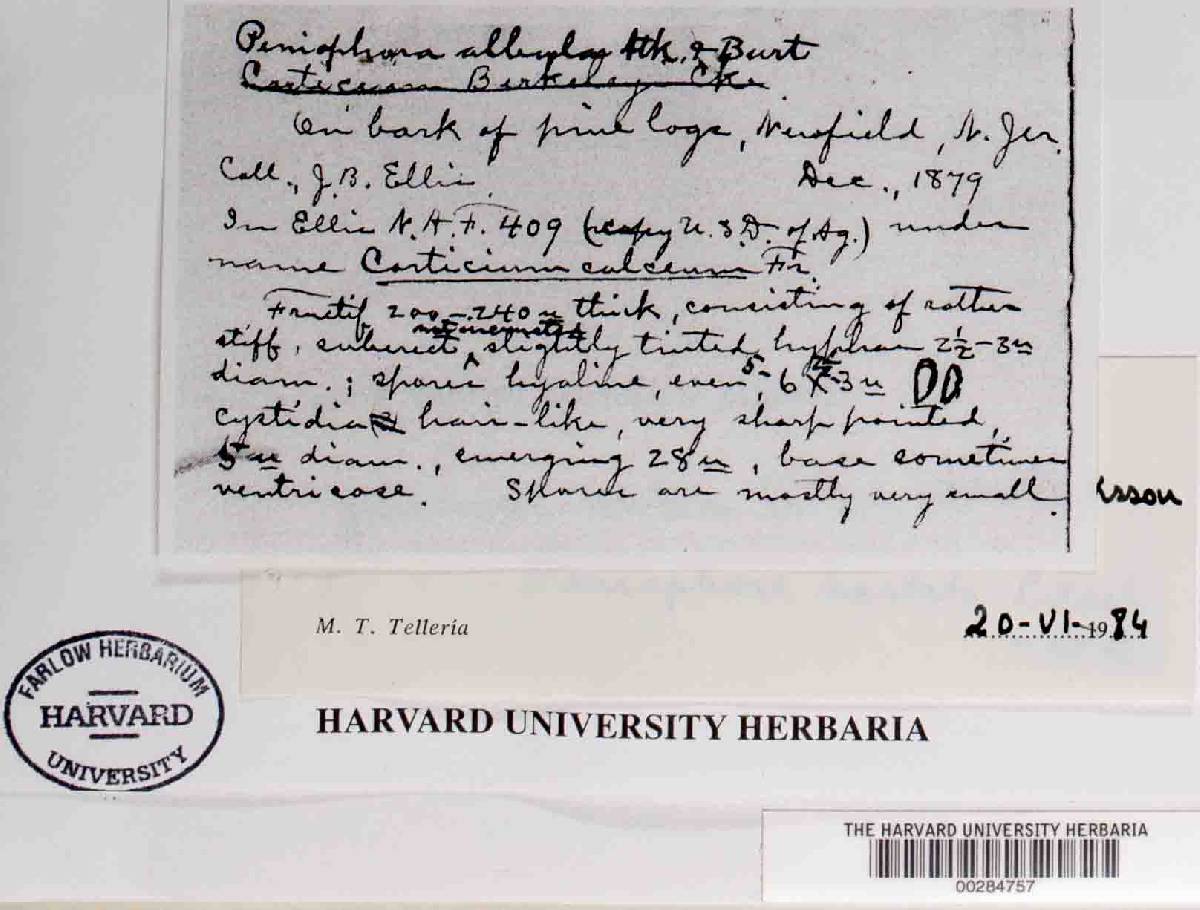 Peniophora albula Atk. & Burt
Corticium Berkeleyi Cke
On bark of pine logs, Newfield, N. Jer.
Coll., J. B. Ellis. Dec., 1879
In Ellis N. A. F. 409 (copy U. S. D. of Ag.) under
name Corticium calceum Fr.
Fructif 200-240 u thick, consisting of rather
not incrusted
stiff, suberect, slightly tinted hyphae 2½-3 u
diam.; spores hyaline, even, 5-6 X 2-3 u
cystidia hair-like, very sharp pointed,
5 u diam., emerging 28 u, base sometimes
ventricose. Spores are mostly very small.
sson
M. T. Tellería 20-VI-1984
FARLOW HERBARIUM
HARVARD
UNIVERSITY
HARVARD UNIVERSITY HERBARIA
THE HARVARD UNIVERSITY HERBARIA
00284757